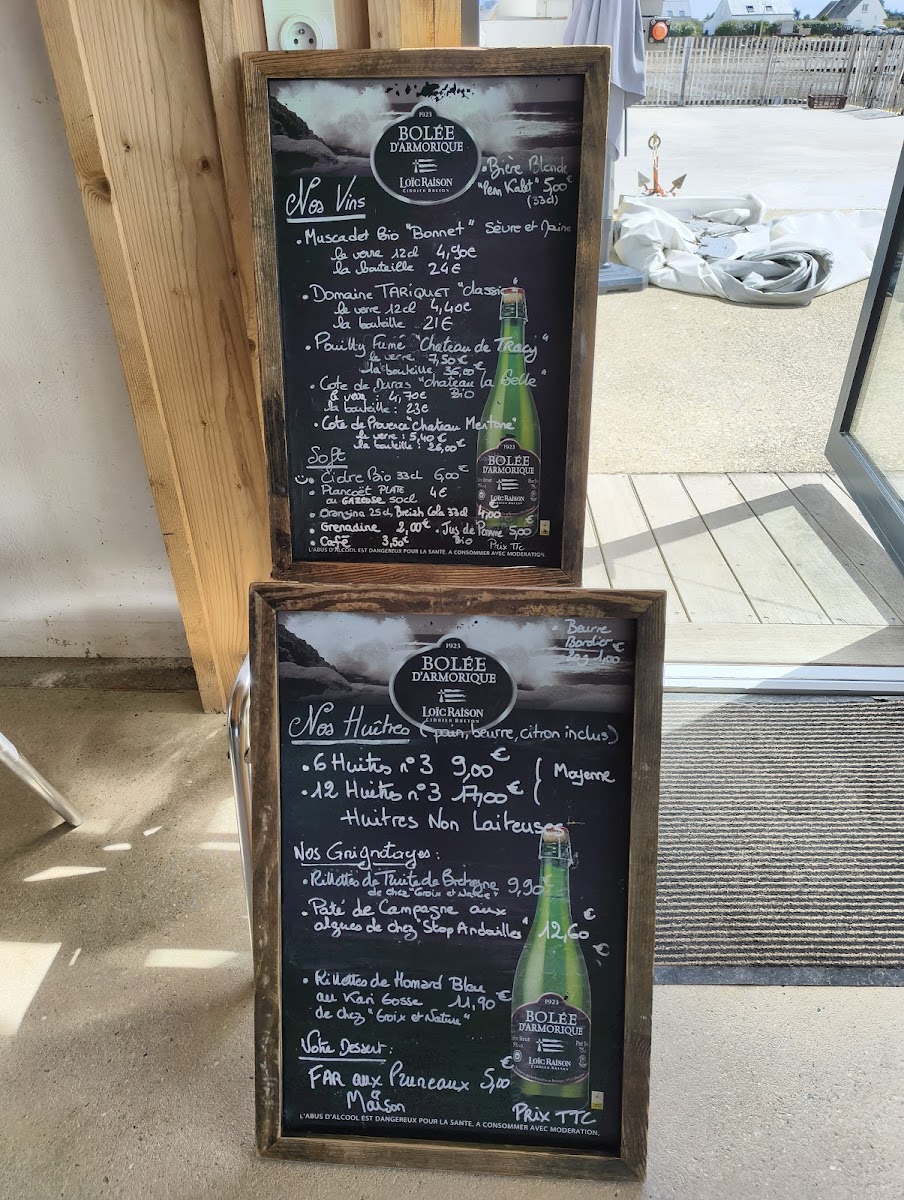 1923
BOLÉE
D'ARMORIQUE
LOÏC RAISON
CIDRIER BRETON
• Bière Blonde
"Penn Kalet" 5,00€
(33cl)
Nos Vins
• Muscadet Bio "Bonnet" Sèvre et Maine
le verre 12cl 4,90€
la bouteille 24€
• Domaine TARIQUET "classic"
le verre 12cl 4,40€
la bouteille 21€
• Pouilly Fumé "Chateau de Tracy"
le verre 7,50€
la bouteille 36,00€
• Cote de Duras "chateau la Belle"
BIO
le verre : 4,70€
la bouteille : 23€
• Cote de Provence "chateau Mentone"
le verre : 5,40€
la bouteille : 26,00€
Soft
• Cidre Bio 33cl 6,00€
• Plancoët PLATE
ou GAZEUSE 50cl 4€
• Orangina 25cl, Breizh Cola 33cl 4,00€
• Grenadine 2,00€ • Jus de Pomme 5,00€
Bio
• Café 3,50€
Prix TTC
1923
BOLÉE
D'ARMORIQUE
LOÏC RAISON
L'ABUS D'ALCOOL EST DANGEREUX POUR LA SANTÉ, A CONSOMMER AVEC MODERATION.
1923
BOLÉE
D'ARMORIQUE
LOÏC RAISON
CIDRIER BRETON
• Beurre
Bordier
20g 1,00€
Nos Huîtres (pain, beurre, citron inclus)
• 6 Huitres n°3 9,00€
• 12 Huitres n°3 17,00€
Moyenne
Huitres Non Laiteuses
Nos Grignotages :
• Rillettes de Truite de Bretagne 9,90€
de chez "Groix et Nature"
• Paté de Campagne aux
algues de chez "Stop Andouilles" 12,60€
€
• Rillettes de Homard Bleu
au Kari Gosse 11,90€
de chez "Groix et Nature"
Votre Dessert :
FAR aux Pruneaux 5,00€
Maison
Prix TTC
1923
BOLÉE
D'ARMORIQUE
LOÏC RAISON
L'ABUS D'ALCOOL EST DANGEREUX POUR LA SANTÉ, A CONSOMMER AVEC MODERATION.